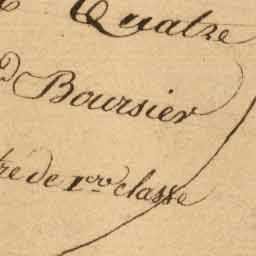 Quatre
Boursier
tre de 1re classe